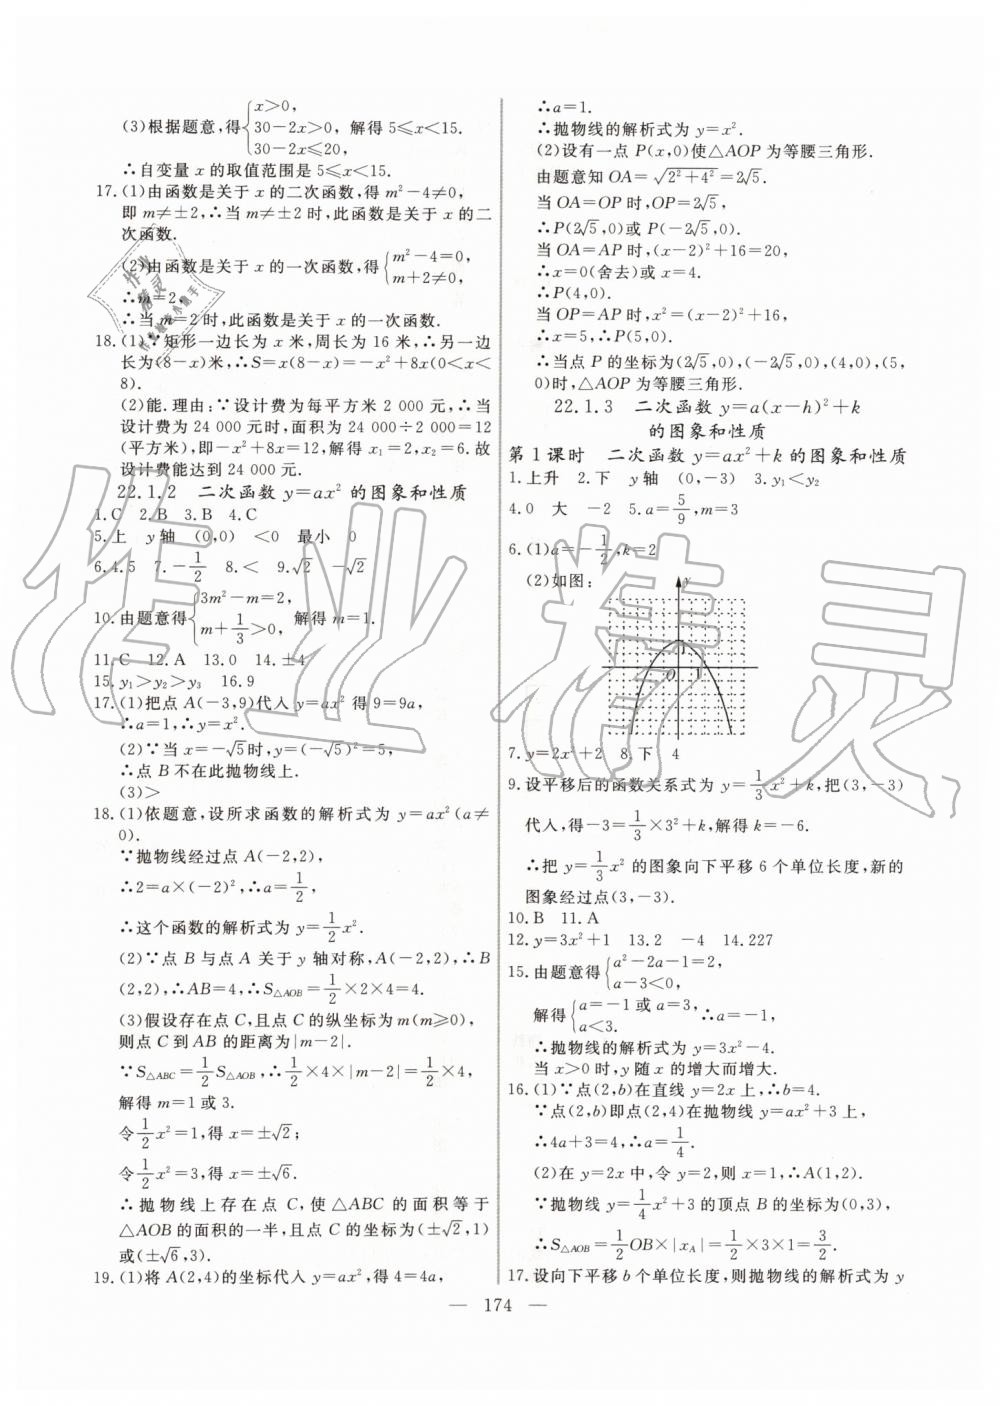 (3)根据题意,得{x>0, 30-2x>0, 30-2x≤20, 解得 5≤x<15.
∴自变量 x 的取值范围是 5≤x<15.
17.(1)由函数是关于 x 的二次函数,得 m²-4≠0,
即 m≠±2,∴当 m≠±2 时,此函数是关于 x 的二
次函数.
(2)由函数是关于 x 的一次函数,得{m²-4=0, m+2≠0,
∴m=2,
∴当 m=2 时,此函数是关于 x 的一次函数.
18.(1)∵矩形一边长为 x 米,周长为 16 米,∴另一边
长为(8-x)米,∴S=x(8-x)=-x²+8x(0<x<
8).
(2)能.理由:∵设计费为每平方米 2 000 元,∴当
设计费为 24 000 元时,面积为 24 000÷2 000=12
(平方米),即-x²+8x=12,解得 x₁=2,x₂=6.故
设计费能达到 24 000 元.
22.1.2 二次函数 y=ax² 的图象和性质
1.C 2.B 3.B 4.C
5.上 y轴 (0,0) <0 最小 0
6.4.5 7.-1/2 8.< 9.√2 -√2
10.由题意得{3m²-m=2, m+1/3>0, 解得 m=1.
11.C 12.A 13.0 14.±4
15.y₁>y₂>y₃ 16.9
17.(1)把点 A(-3,9)代入 y=ax² 得 9=9a,
∴a=1,∴y=x².
(2)∵当 x=-√5时,y=(-√5)²=5,
∴点 B 不在此抛物线上.
(3)>
18.(1)依题意,设所求函数的解析式为 y=ax²(a≠
0).
∵抛物线经过点 A(-2,2),
∴2=a×(-2)²,∴a=1/2,
∴这个函数的解析式为 y=1/2x².
(2)∵点 B 与点 A 关于 y 轴对称,A(-2,2),∴B
(2,2),∴AB=4,∴S△AOB=1/2×2×4=4.
(3)假设存在点 C,且点 C 的纵坐标为 m(m≥0),
则点 C 到 AB 的距离为|m-2|.
∵S△ABC=1/2S△AOB,∴1/2×4×|m-2|=1/2×4,
解得 m=1 或 3.
令1/2x²=1,得 x=±√2;
令1/2x²=3,得 x=±√6.
∴抛物线上存在点 C,使△ABC 的面积等于
△AOB 的面积的一半,且点 C 的坐标为(±√2,1)
或(±√6,3).
19.(1)将 A(2,4)的坐标代入 y=ax²,得 4=4a,
∴a=1.
∴抛物线的解析式为 y=x².
(2)设有一点 P(x,0)使△AOP为等腰三角形.
由题意知 OA=√(2²+4²)=2√5.
当 OA=OP时,OP=2√5,
∴P(2√5,0)或 P(-2√5,0).
当 OA=AP时,(x-2)²+16=20,
∴x=0(舍去)或 x=4.
∴P(4,0).
当 OP=AP时,x²=(x-2)²+16,
∴x=5,∴P(5,0).
∴当点 P 的坐标为(2√5,0),(-2√5,0),(4,0),(5,
0)时,△AOP为等腰三角形.
22.1.3 二次函数 y=a(x-h)²+k
的图象和性质
第1课时 二次函数 y=ax²+k 的图象和性质
1.上升 2.下 y轴 (0,-3) 3.y₁<y₂
4.0 大 -2 5.a=5/9,m=3
6.(1)a=-1/2,k=2
(2)如图:
y
O 1
7.y=2x²+2 8.下 4
9.设平移后的函数关系式为 y=1/3x²+k,把(3,-3)
代入,得-3=1/3×3²+k,解得 k=-6.
∴把 y=1/3x²的图象向下平移 6 个单位长度,新的
图象经过点(3,-3).
10.B 11.A
12.y=3x²+1 13.2 -4 14.227
15.由题意得{a²-2a-1=2, a-3<0,
解得{a=-1 或 a=3, a<3. ∴a=-1,
∴抛物线的解析式为 y=3x²-4.
当 x>0 时,y 随 x 的增大而增大.
16.(1)∵点(2,b)在直线 y=2x 上,∴b=4.
∵点(2,b)即点(2,4)在抛物线 y=ax²+3 上,
∴4a+3=4,∴a=1/4.
(2)在 y=2x 中,令 y=2,则 x=1,∴A(1,2).
∵抛物线 y=1/4x²+3 的顶点 B 的坐标为(0,3),
∴S△AOB=1/2OB×|xA|=1/2×3×1=3/2.
17.设向下平移 b 个单位长度,则抛物线的解析式为 y
— 174 —
作业精灵